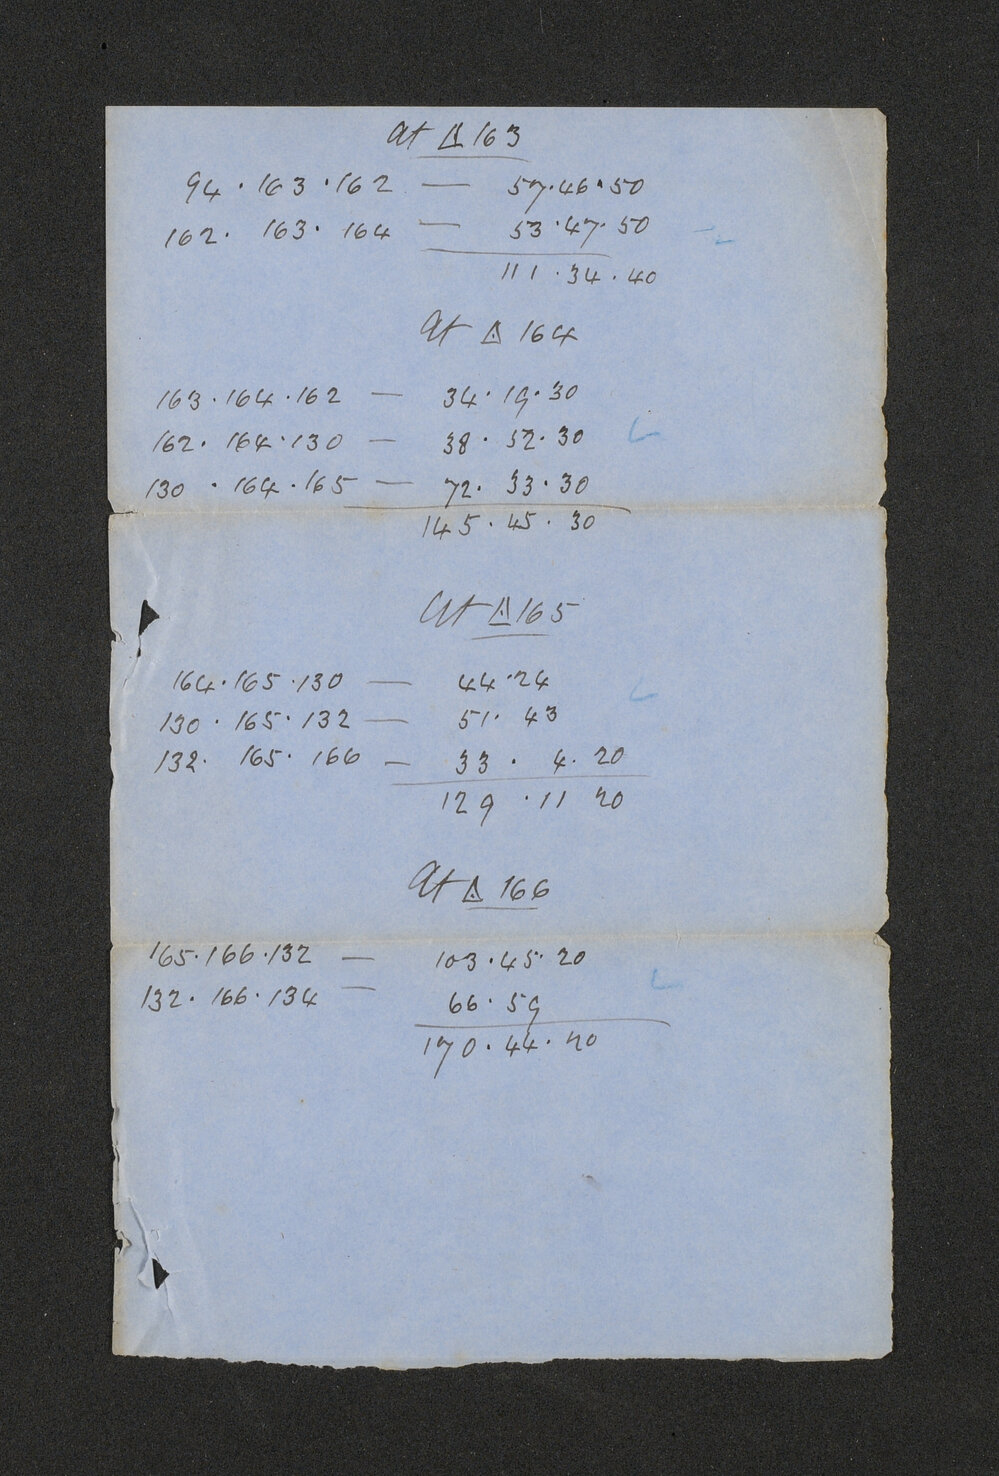 at △ 163
94 · 163 · 162 — 57 · 46 · 50
162 · 163 · 164 — 53 · 47 · 50
111 · 34 · 40
at △ 164
163 · 164 · 162 — 34 · 19 · 30
162 · 164 · 130 — 38 · 52 · 30
130 · 164 · 165 — 72 · 33 · 30
145 · 45 · 30
at △ 165
164 · 165 · 130 — 44 · 24
130 · 165 · 132 — 51 · 43
132 · 165 · 166 — 33 · 4 · 20
129 · 11 20
at △ 166
165 · 166 · 132 — 103 · 45 · 20
132 · 166 · 134 — 66 · 59
170 · 44 · 20